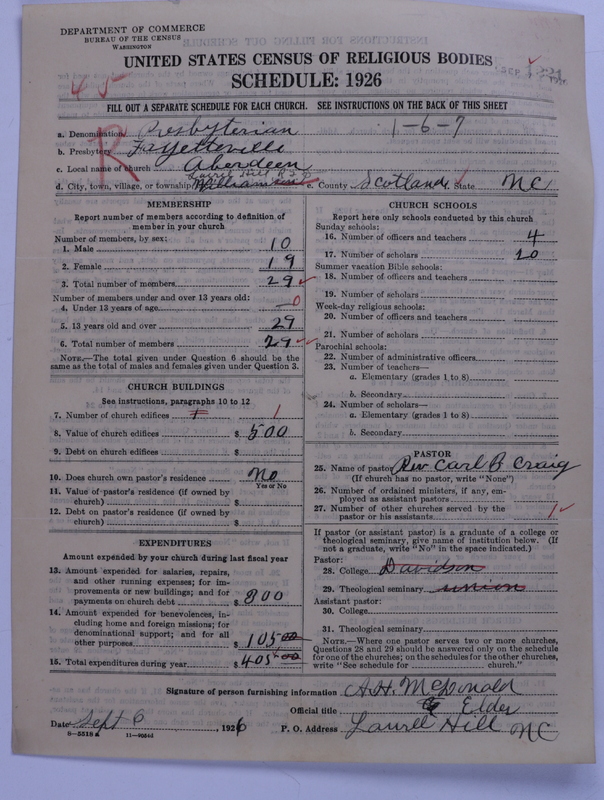 DEPARTMENT OF COMMERCE
BUREAU OF THE CENSUS
WASHINGTON
UNITED STATES CENSUS OF RELIGIOUS BODIES
SCHEDULE: 1926
45
FILL OUT A SEPARATE SCHEDULE FOR EACH CHURCH. SEE INSTRUCTIONS ON THE BACK OF THIS SHEET
R
a. Denomination Presbyterian 1-6-7
b. Presbytery Fayetteville
c. Local name of church Aberdeen
Laurel Hill
d. City, town, village, or township Williamson e. County Scotland State NC
MEMBERSHIP
Report number of members according to definition of
member in your church
Number of members, by sex:
1. Male 10
2. Female 19
3. Total number of members 29
Number of members under and over 13 years old:
4. Under 13 years of age 0
5. 13 years old and over 29
6. Total number of members 29
NOTE.—The total given under Question 6 should be the
same as the total of males and females given under Question 3.
CHURCH BUILDINGS
See instructions, paragraphs 10 to 12
7. Number of church edifices 1 1
8. Value of church edifices $ 500
9. Debt on church edifices $
10. Does church own pastor's residence No
Yes or No
11. Value of pastor's residence (if owned by
church) $
12. Debt on pastor's residence (if owned by
church) $
EXPENDITURES
Amount expended by your church during last fiscal year
13. Amount expended for salaries, repairs,
and other running expenses; for im-
provements or new buildings; and for
payments on church debt $ 800
14. Amount expended for benevolences, in-
cluding home and foreign missions; for
denominational support; and for all
other purposes $ 105 00
15. Total expenditures during year $ 405 00
CHURCH SCHOOLS
Report here only schools conducted by this church
Sunday schools:
16. Number of officers and teachers 4
17. Number of scholars 20
Summer vacation Bible schools:
18. Number of officers and teachers
19. Number of scholars
Week-day religious schools:
20. Number of officers and teachers
21. Number of scholars
Parochial schools:
22. Number of administrative officers
23. Number of teachers—
a. Elementary (grades 1 to 8)
b. Secondary
24. Number of scholars—
a. Elementary (grades 1 to 8)
b. Secondary
PASTOR
25. Name of pastor Rev Carl B Craig
(If church has no pastor, write "None")
26. Number of ordained ministers, if any, em-
ployed as assistant pastors
27. Number of other churches served by the
pastor or his assistants 1
If pastor (or assistant pastor) is a graduate of a college or
theological seminary, give name of institution below. (If
not a graduate, write "No" in the space indicated.)
Pastor:
28. College Davidson
29. Theological seminary union
Assistant pastor:
30. College
31. Theological seminary
NOTE.—Where one pastor serves two or more churches,
Questions 28 and 29 should be answered only on the schedule
for one of the churches; on the schedules for the other churches,
write "See schedule for church."
Signature of person furnishing information A.H. McDonald
Official title Elder
Date Sept 6, 1926 P. O. Address Laurel Hill NC
8-5518a 11-9064d